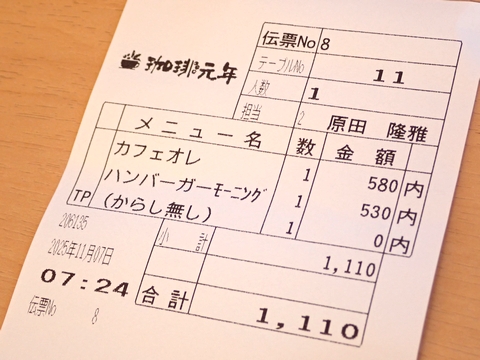 珈琲元年
伝票No 8
テーブルNo 11
人数 1
担当 2 原田 隆雅
メニュー名 数 金額
カフェオレ 1 580 内
ハンバーガーモーニング 1 530 内
(からし無し) 1 0 内
TP
小計 1,110
合計 1,110
206135
2025年11月07日
07:24
伝票No 8